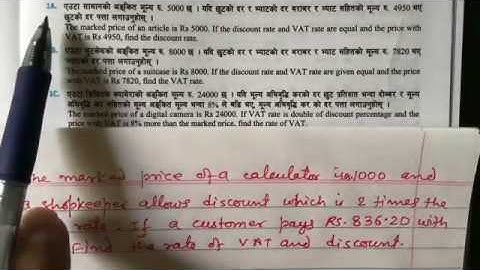 1A. एउटा सामानको अङ्कित मूल्य रु. 5000 छ । यदि छुटको दर र भ्याटको दर बराबर र भ्याट सहितको मूल्य रु. 4950 भए
छुटको दर पत्ता लगाउनुहोस् ।
The marked price of an article is Rs 5000. If the discount rate and VAT rate are equal and the price with
VAT is Rs 4950, find the discount rate.
एउटा सुटकेसको अङ्कित मूल्य रु. 8000 छ । यदि छुटको दर र भ्याटको दर बराबर र भ्याट सहितको मूल्य रु. 7820 भए
पत्ता लगाउनुहोस् ।
The marked price of a suitcase is Rs 8000. If the discount rate and VAT rate are given equal and the price
VAT is Rs 7820, find the VAT rate.
एउटा डिजिटल क्यामेराको अङ्कित मूल्य रु. 24000 छ । यदि मूल्य अभिवृद्धि करको दर छुट प्रतिशत भन्दा दोब्बर र मूल्य
अभिवृद्धि कर सहितको मूल्य अङ्कित मूल्य भन्दा 8% ले बढि भए, मूल्य अभिवृद्धि कर को दर पत्ता लगाउनुहोस् ।
The marked price of a digital camera is Rs 24000. If VAT rate is double of discount percentage and the
price with VAT is 8% more than the marked price, find the rate of VAT.
marked price of a calculator is 1000 and
shopkeeper allows discount which is 2 times the
rate. If a customer pays RS. 836.20 with
Find the rate of VAT and discount.